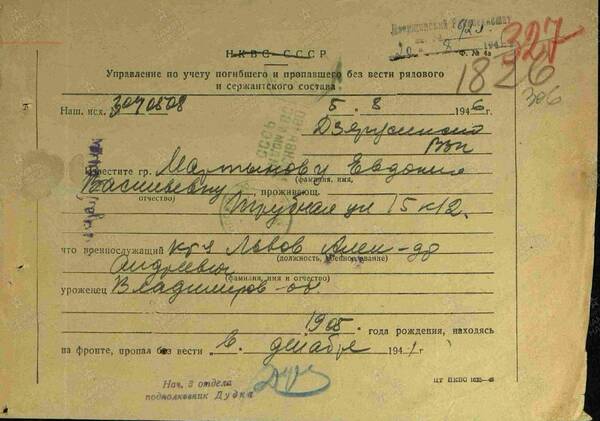 Дзержинский Райвоенкомат
925
20 8 194
327
НКВС СССР
Ф. № 4
1826
306
Управление по учету погибшего и пропавшего без вести рядового
и сержантского состава
Наш. исх. 3040508 5. 8 1946 г
Дзержинского
РВК
Известите гр. Мартынову Евдокию
(фамилия, имя,
Васильевну проживающ.
отчество)
Трубная ул 15 к 12.
что военнослужащий кр-ц Львов Алек-др
(должность, наименование)
Андреевич
(фамилия, имя и отчество)
уроженец Владимиров-об.
1905. года рождения, находясь
на фронте, пропал без вести в декабре 1941 г
Нач. 8 отдела
подполковник Дудка
ЦТ НКВС